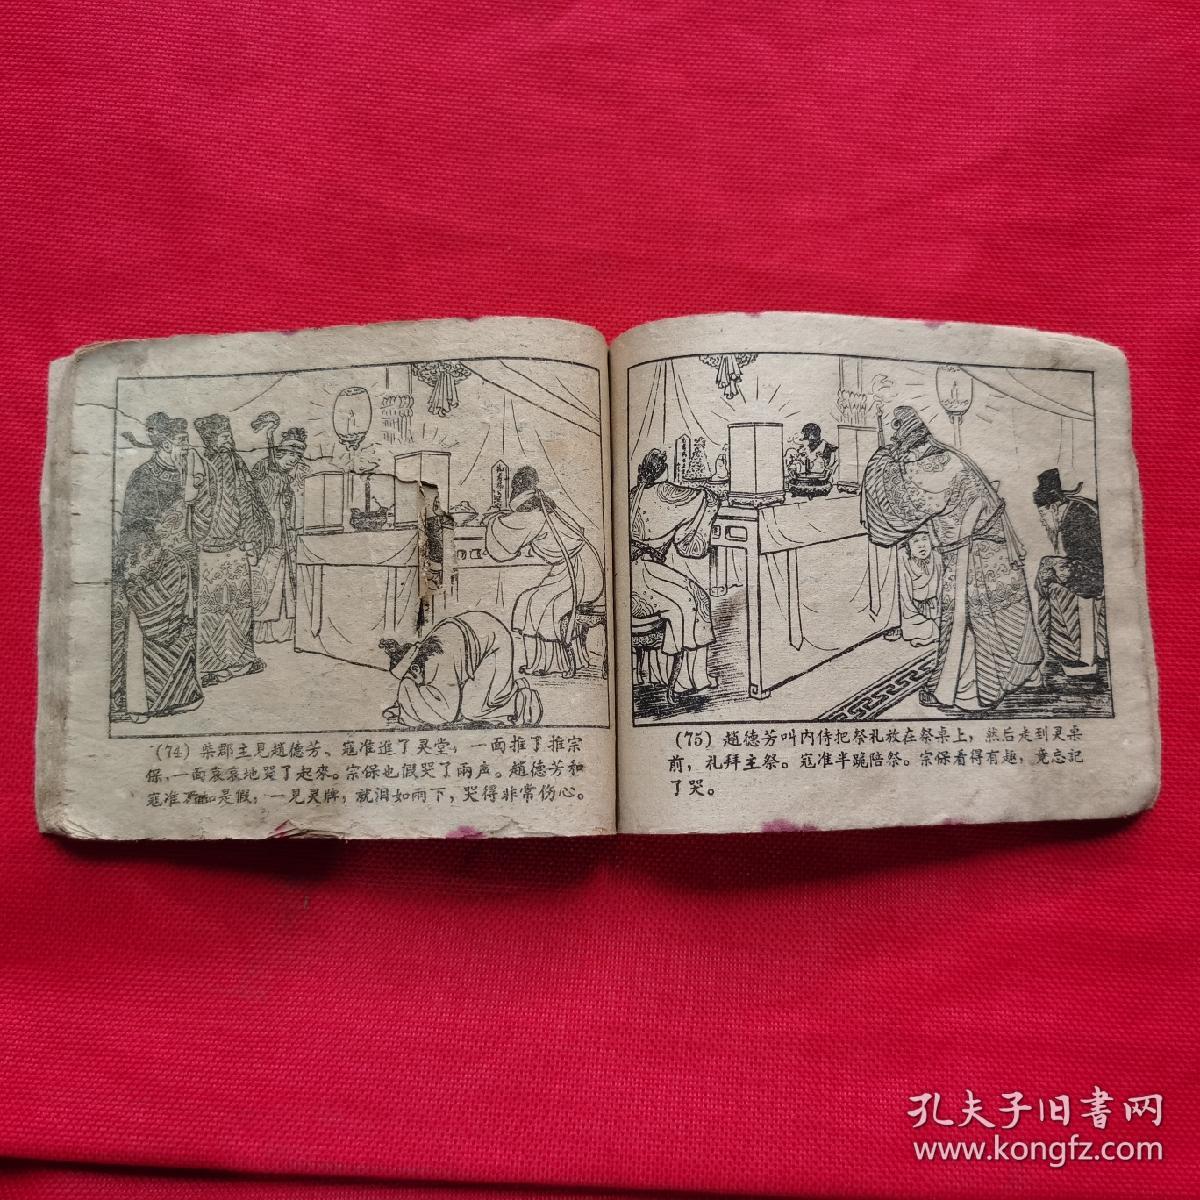 (74)柴郡主見趙德芳、寇准進了灵堂，一面推了推宗
保，一面哀哀地哭了起來。宗保也假哭了兩声。趙德芳和
寇准不知是假，一見灵牌，就泪如雨下，哭得非常伤心。
(75) 趙德芳叫内侍把祭礼放在祭桌上，然后走到灵桌
前，礼拜主祭。寇准半跪陪祭。宗保看得有趣，竟忘記
了哭。
孔夫子旧書网
www.kongfz.com